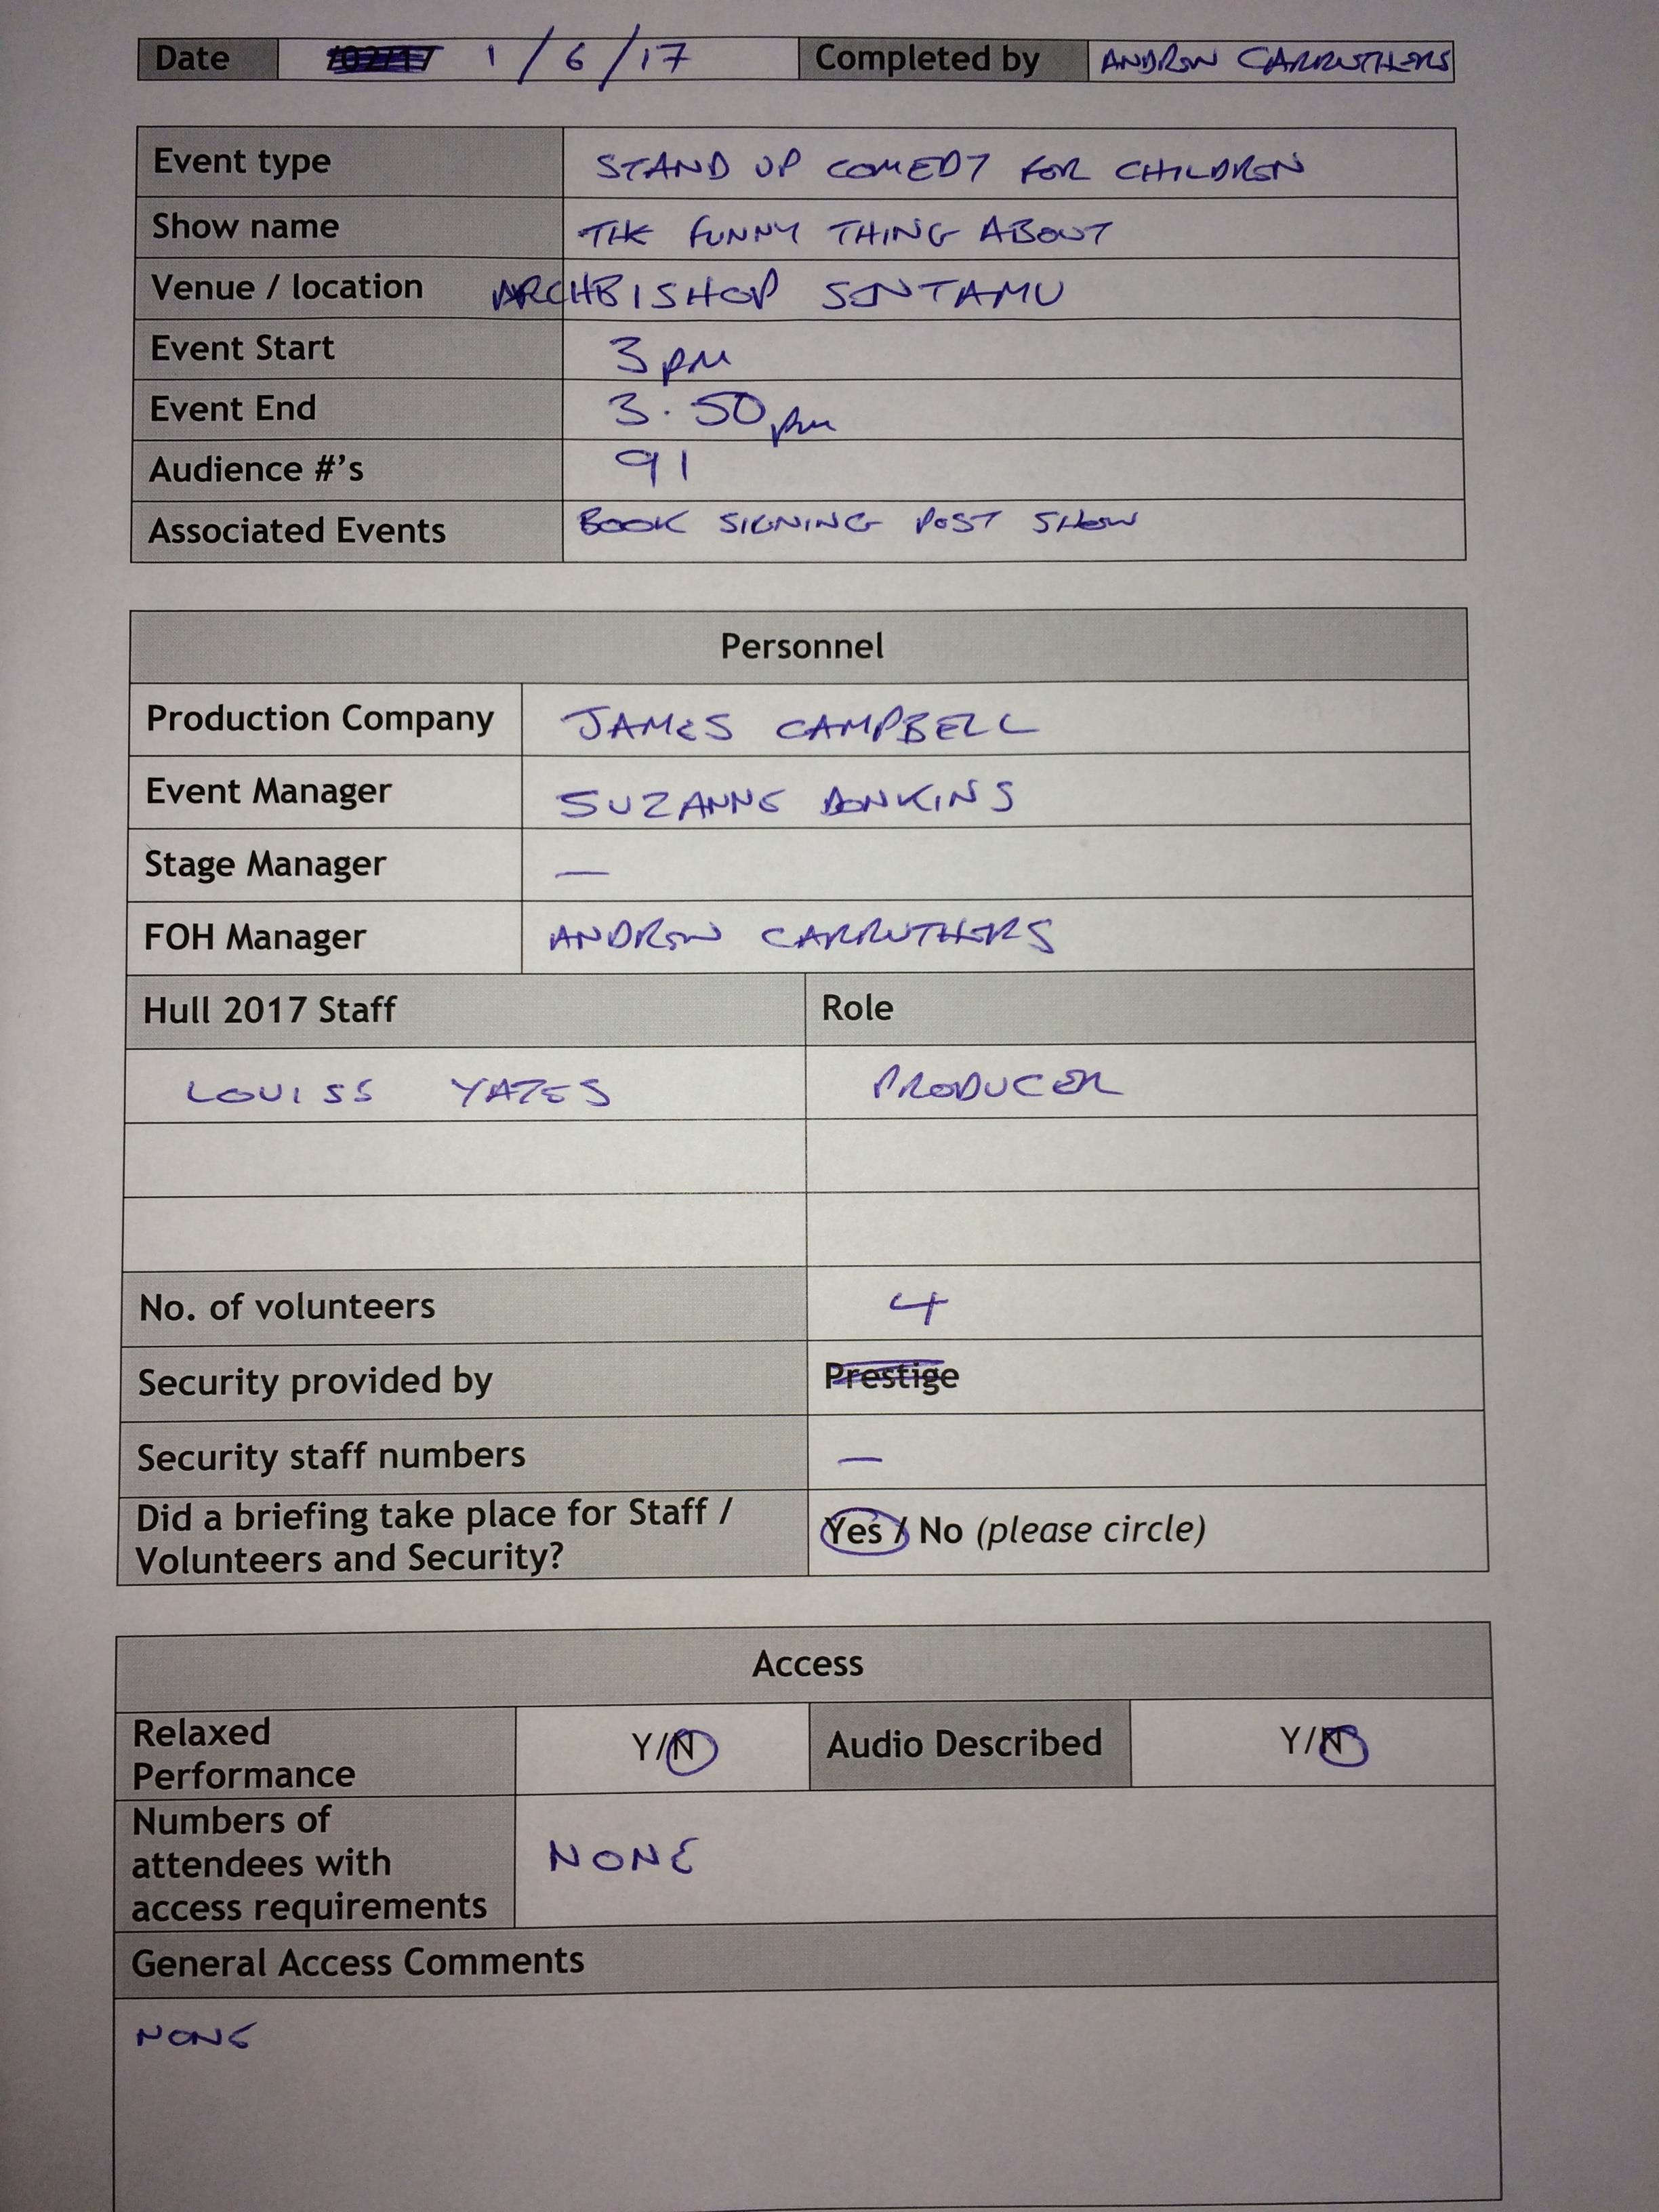 Date 1/6/17 Completed by ANDREW CARRUTHERS
Event type STAND UP COMEDY FOR CHILDREN
Show name THE FUNNY THING ABOUT
Venue / location ARCHBISHOP SENTAMU
Event Start 3pm
Event End 3.50pm
Audience #'s 91
Associated Events BOOK SIGNING POST SHOW
Personnel
Production Company JAMES CAMPBELL
Event Manager SUZANNE DONKINS
Stage Manager —
FOH Manager ANDREW CARRUTHERS
Hull 2017 Staff Role
LOUISE YATES PRODUCER
No. of volunteers 4
Security provided by Prestige
Security staff numbers —
Did a briefing take place for Staff /
Volunteers and Security? Yes / No (please circle)
Access
Relaxed
Performance Y/N Audio Described Y/N
Numbers of
attendees with
access requirements NONE
General Access Comments
NONE